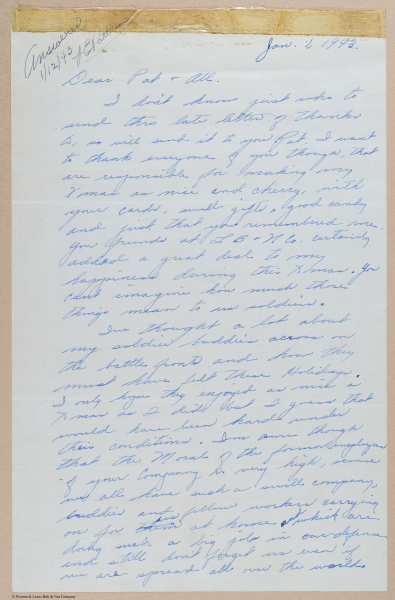 Answered
1/12/43
Jan. 1, 1943.
Dear Pat & All.
I don't know just who to
send this late letter of thanks
to, so will send it to you Pat. I want
to thank everyone of you though, that
are responsible for making my
Xmas as nice and cheery, with
your cards, swell gifts & good candy
and just that you remembered me.
You friends at L B & N Co. certainly
added a great deal to my
happiness during this Xmas. You
cant imagine how much those
things mean to us soldiers.
Ive thought a lot about
my soldier buddies across on
the battle fronts and how they
must have felt these Holidays.
I only hope they enjoyed as nice a
Xmas as I did but I guess that
would have been hard under
their conditions. I'm sure though
that the Moral of the former employees
of your Company is very high, since
we all have such a swell company,
buddies and fellow workers carrying
on for us at home, which are
doing such a big job in our defense
and still don't forget us even if
we are spread all over the world.
© Peasant & Lewis Bolt & Nut Company